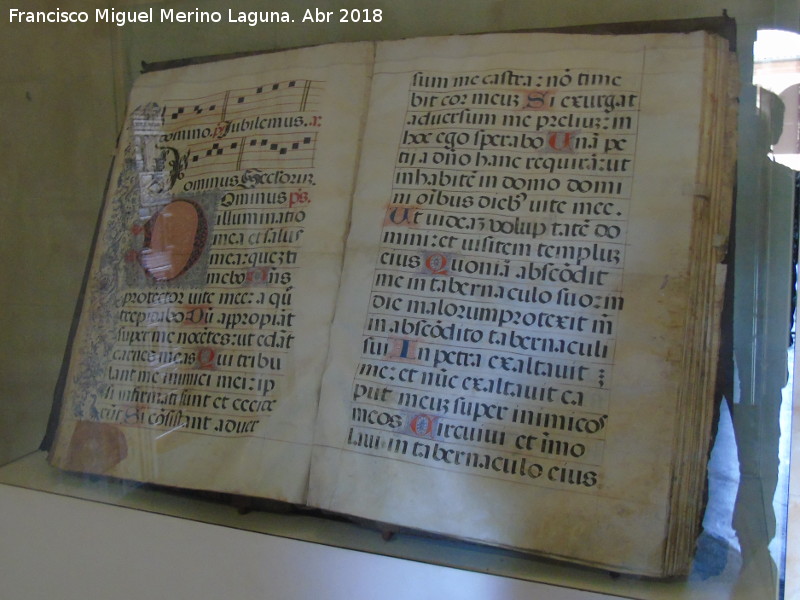 Francisco Miguel Merino Laguna. Abr 2018
domino. Jubilemus.
ominus Secforiz.
Ominus ps.
illuminatio
mea et salus
mea: quez ti
mebo Dñs
protector uite mee: a q̃
trepidabo Dũ appropiãt
super me nocẽtes: ut edãt
carnes meas Qui tribu
lant me inimici mei: ip
si infirmati sunt et cecide
rũt Si cõsistant aduer
sum me castra: nõ time
bit cor meuz Si exurgat
aduersum me prelium: in
hoc ego sperabo Unã pe
tij a dño hanc requirã: ut
inhabitẽ in domo domi
ni oĩbus dieb⁹ uite mee.
Ut uideaz volup tatẽ do
mini: et uisitem templuz
eius Quoniã abscõdit
me in tabernaculo suo: in
die malorum protexit m̃
in abscõdito tabernaculi
sui In petra exaltauit
me: et nũc exaltauit ca
put meuz super inimicos
meos Circuiui et ĩmo
laui in tabernaculo eius